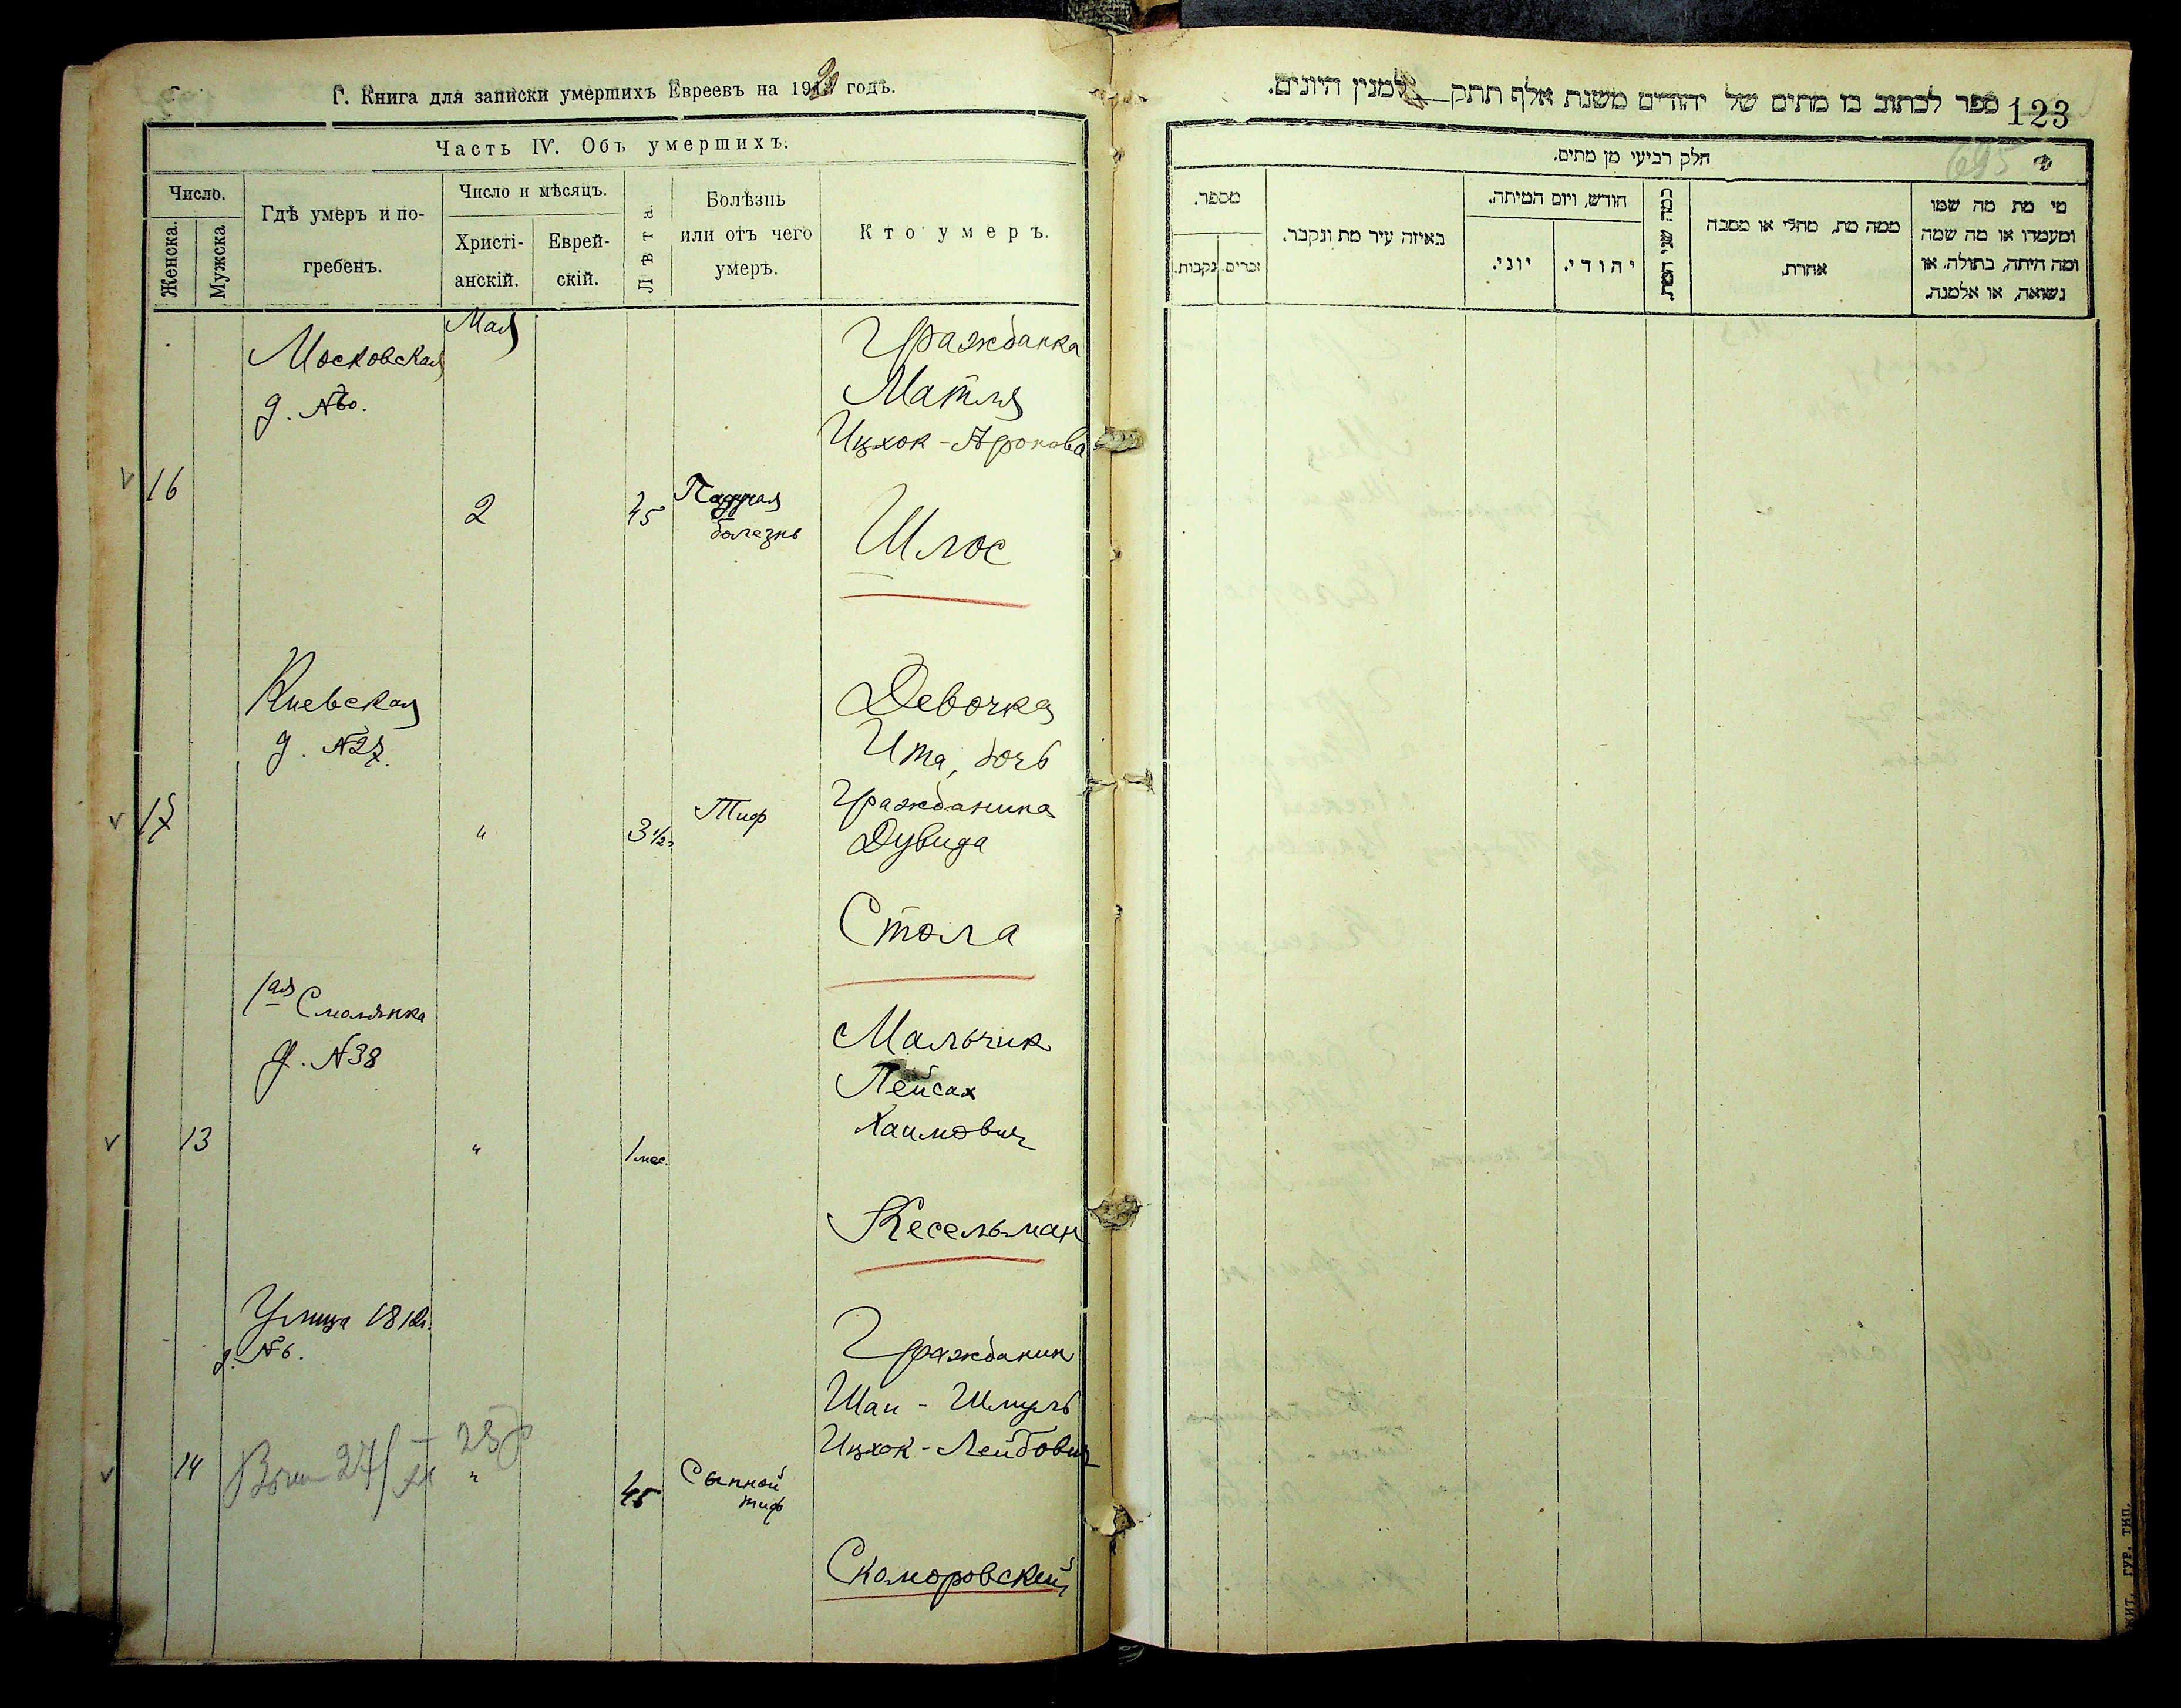 Г. Книга для записки умершихъ Евреевъ на 1920 годъ.
Часть IV. Объ умершихъ.
Число.
Женска.
Мужска
Гдѣ умеръ и по-
гребенъ.
Число и мѣсяцъ.
Христі-
анскій.
Еврей-
скій.
Лѣта.
Болѣзнь
или отъ чего
умеръ.
Кто умеръ.
Московская
д. №
Мая
Гражданка
Матля
Ицхок-Аронова
16
2
45
Падучая
болезнь
Шлос
Киевская
д. №27.
Девочка
Ита, дочь
гражданина
Дувида
17
"
3 1/2
Тиф
Стола
1ая Смолянка
д. №38
Мальчик
Пейсах
Хаимович
13
"
1 мес.
Кесельман
Улица 1812г.
д. №6.
Гражданин
Шаи-Шмуль
Ицхок-Лейбович
14
27/XII 23 г
"
45
Сыпной
тиф
Скоморовский
ספר לכתוב בו מתים של יהודים משנת אלף תתק למנין היונים.
123
695
חלק רביעי מן מתים.
מספר.
זכרים.
נקבות.
באיזה עיר מת ונקבר.
חודש, ויום המיתה.
יוני.
יהודי.
כמה שני המת.
ממה מת, מחלי או מסבה
אחרת.
מי מת מה שמו
ומעמדו או מה שמה
ומה היתה, בתולה, או
נשואה, או אלמנה.
ЖИТ. ГУР. ТИП.